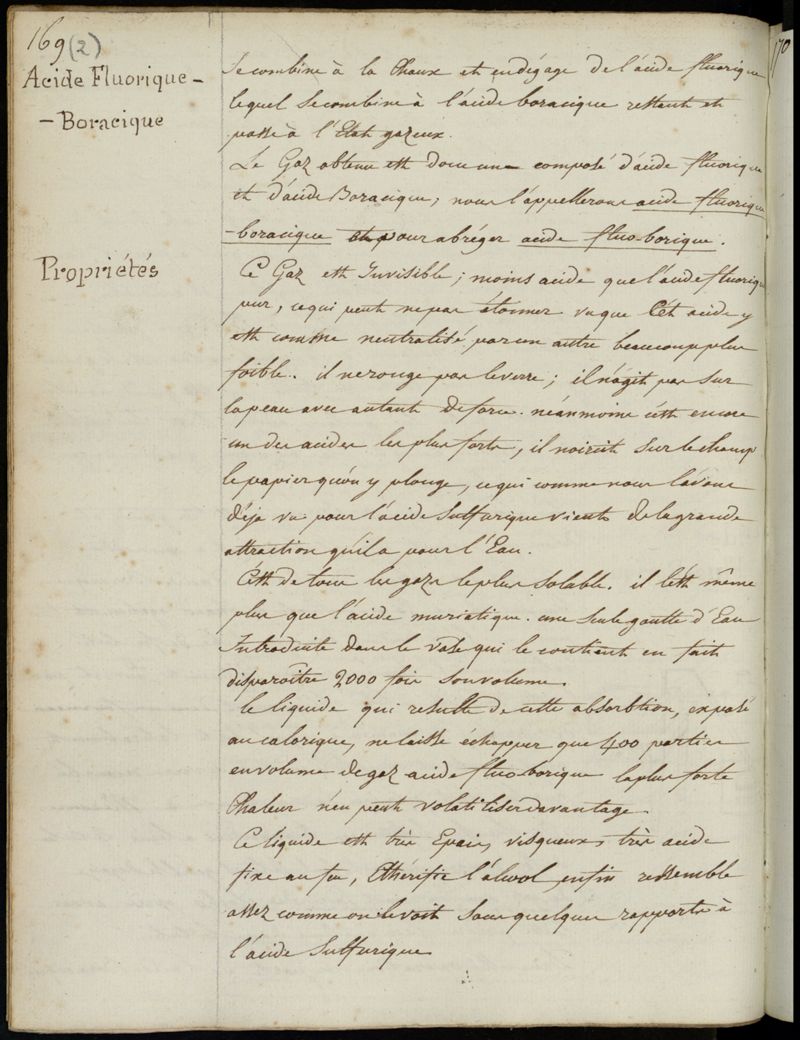 169 (2)
Acide Fluorique -
- Boracique
Se combine à la Chaux et en dégage de l'acide fluorique
lequel se combine à l'acide boracique restant et
passe à l'Etat gazeux.
Le Gaz obtenu est donc un composé d'acide fluorique
et d'acide Boracique, nous l'appellerons acide fluorique
-boracique et pour abréger acide fluo-borique.
Propriétés
Ce Gaz est Invisible; moins acide que l'acide fluorique
pur, ce qui peut ne pas étonner vu que Cet acide y
est comme neutralisé par un autre beaucoup plus
foible. il ne ronge pas le verre; il n'agit pas sur
la peau avec autant de force. néanmoins c'est encore
un des acides les plus forts, il noircit sur le champ
le papier qu'on y plonge, ce qui comme nous l'avons
déja vu pour l'acide Sulfurique vient de la grande
attraction qu'il a pour l'Eau.
C'est de tous les gazs le plus soluble. il l'est même
plus que l'acide muriatique. une seule goutte d'Eau
Introduite dans le vase qui le contient en fait
disparoître 2000 fois son volume.
le liquide qui resulte de cette absorbtion, exposé
au calorique, ne laisse échapper que 400 parties
en volume de gaz acide fluo borique la plus forte
Chaleur n'en peut volatiliser davantage.
Ce liquide est très Epais, visqueux, très acide
fixe au feu, Ethérifie l'alcool, enfin ressemble
assez comme on le voit sous quelques rapports à
l'acide Sulfurique
170